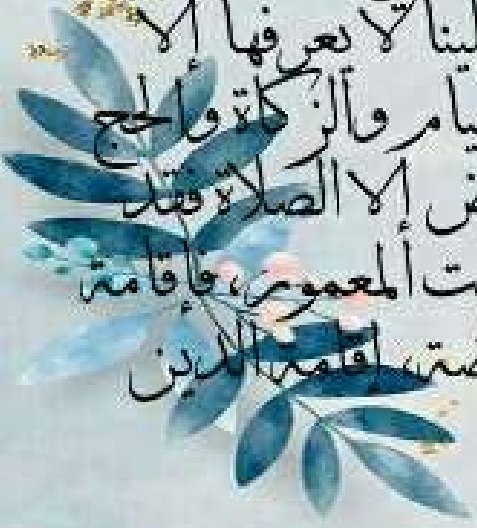 لينا لا يعرفها إلا
يام والزكاة والحج
ض إلا الصلاة فقد
ت المعمور، فإقامة
ضة، إقامة الدين